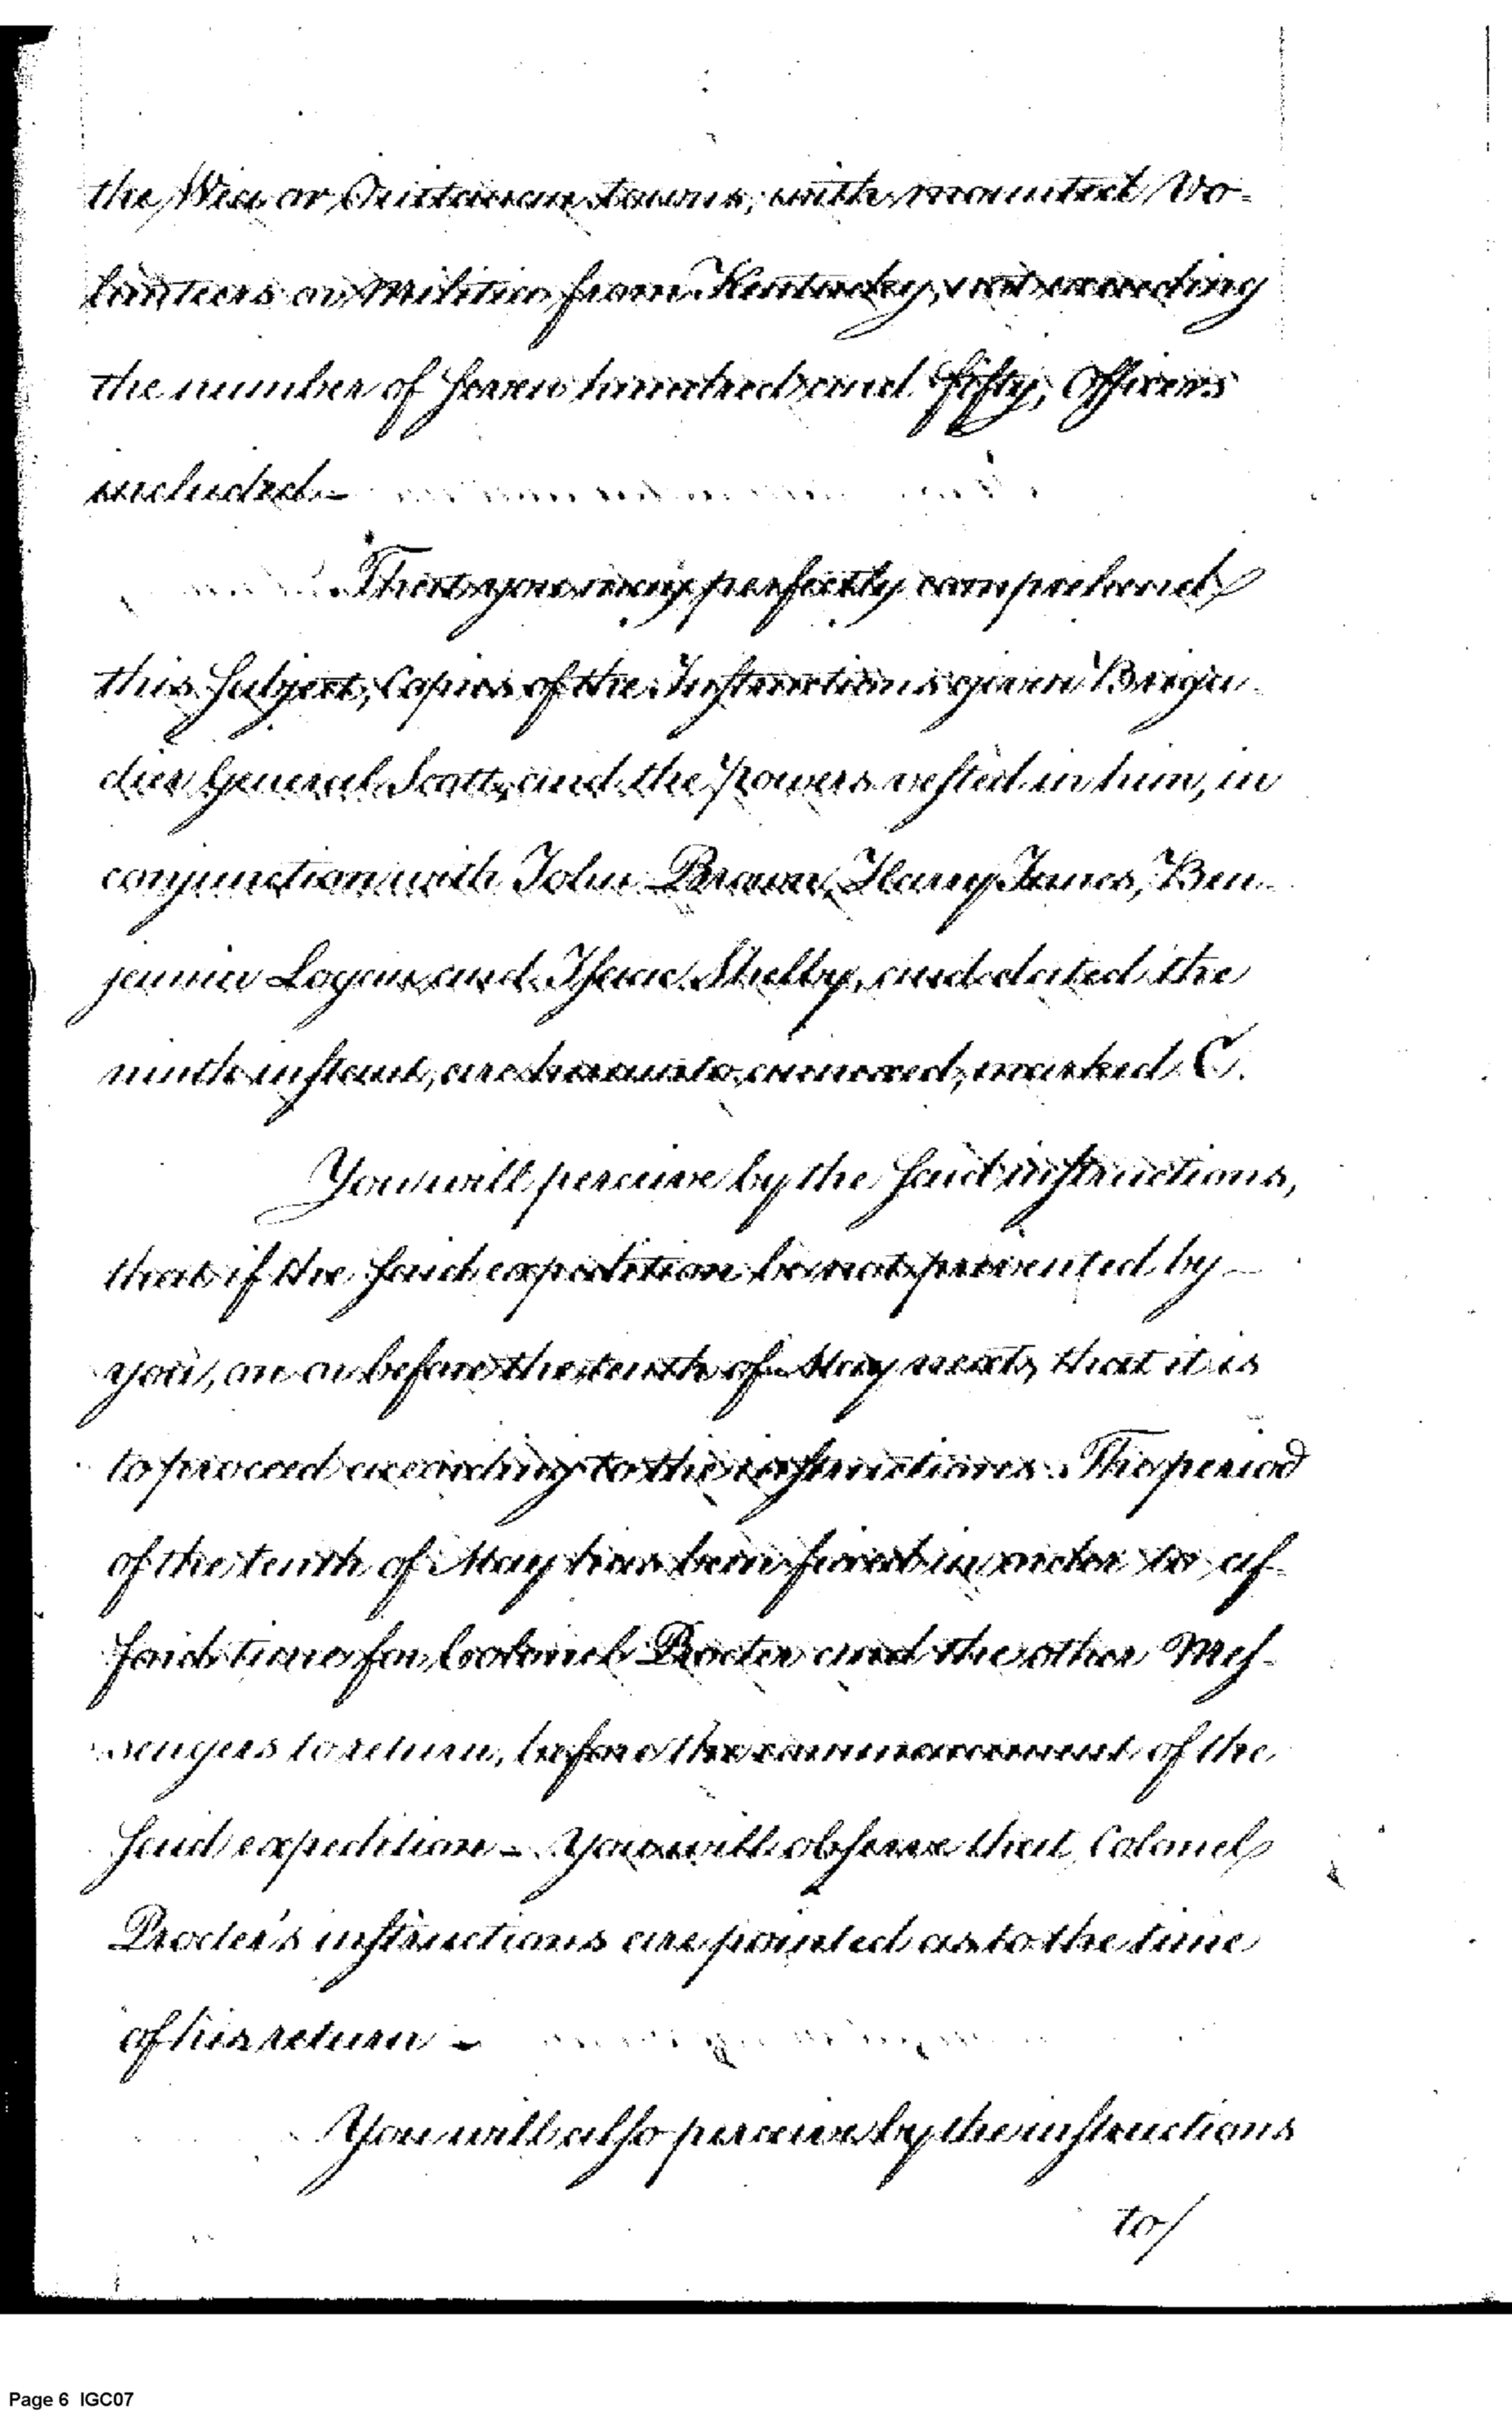 the Wea or Ouittanan towns, with mounted Vo=
lunteers or Militia from Kentucky, not exceeding
the number of Seven hundred and fifty, Officers
included–
That you may perfectly comprehend
this Subject, Copies of the Instructions given Briga-
dier General Scott, and the powers vested in him, in
conjunction with John Brown, Harry Innes, Ben-
jamin Logan, and Isaac Shelby, and dated the
ninth instant, are hereunto annexed, marked C.
You will perceive by the said instructions,
that if the said expedition be not prevented by–
you, on or before the tenth of May next, that it is
to proceed according to the instructions. The period
of the tenth of May has been fixed in order to af-
ford time for Colonel Procter and the other Mes-
sengers to return, before the commencement of the
said expedition – You will observe that Colonel
Procter's instructions are pointed as to the time
of his return –
You will also perceive by the instructions
to/
Page 6 IGC07